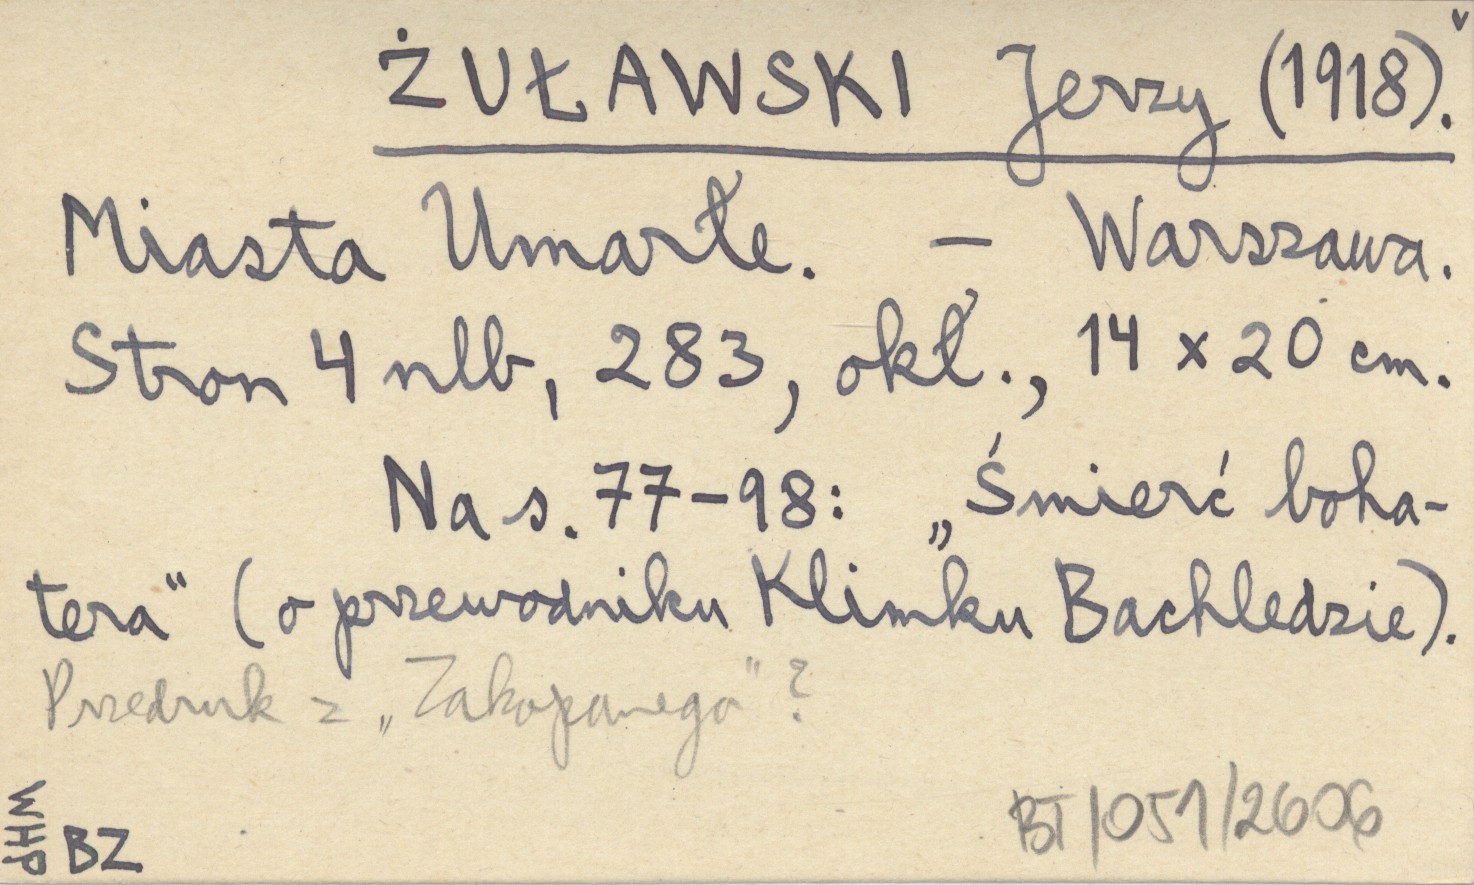 ŻUŁAWSKI Jerzy (1918).
Miasta Umarłe. — Warszawa.
Stron 4 nlb, 283, okł., 14 x 20 cm.
Na s. 77-98: „Śmierć boha-
tera" (o przewodniku Klimku Bachledzie).
Przedruk z „Zakopanego" ?
WHP
BZ
BT/051/2606